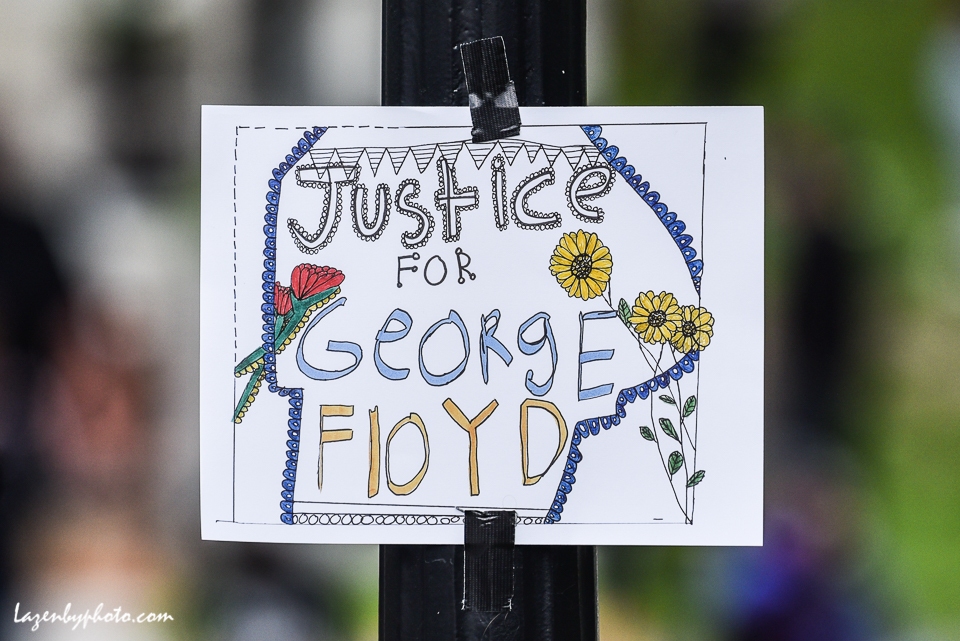 Justice
FOR
GeORgE
FlOYD
Lazenbyphoto.com